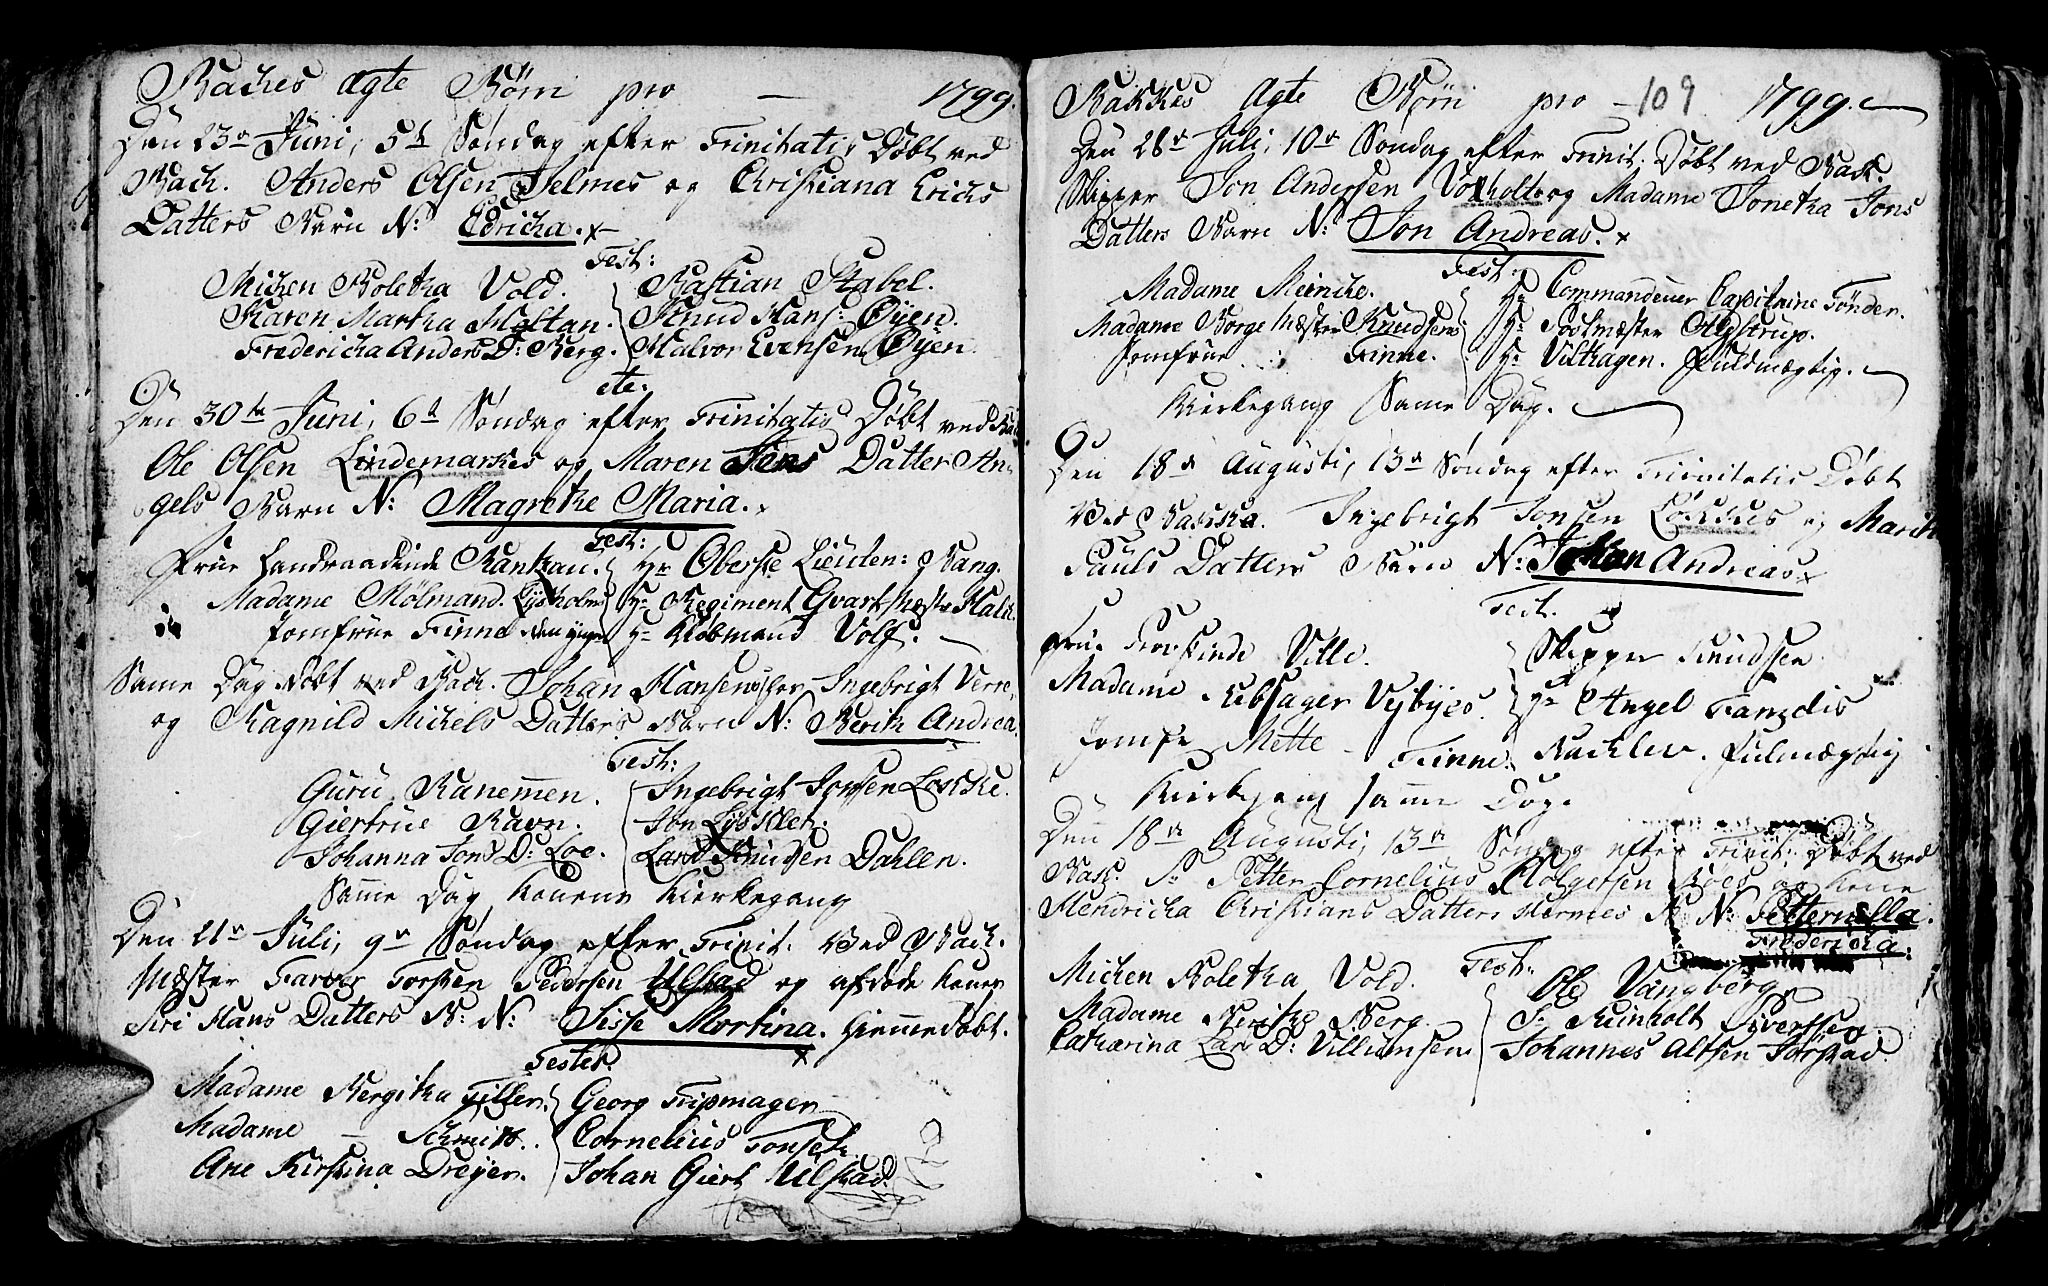 Backes ægte Børn pro — 1799.
Den 23de Juni, 5te Søndag efter Trinitatis Døbt ved
Bach. Anders Olsen Selmes og Christiana Erichs
Datters Barn N: Edricha.
Test:
Michen Boletha Vold. Bastian Stabel.
Karen Martha Moltan. Knud Hans: Øyen.
Fredericha Anders D: Berg. Halvor Evensen Øyen.
etc:
Den 30te Juni, 6te Søndag efter Trinitatis Døbt ved
Ole Olsen Lindemarkes og Maren Jens Datter An-
gels Barn N: Magrethe Maria.
Test:
Frue Landraadinde Rantzau. Hr Oberste Lieuten: Bang.
Madame Mølmand. Lysholm Hr Regiment Qvartmæster
Jomfrue Finne den yngre Hr Kiøbmand Volf.
Same Dag døbt ved Bach. Johan Hansen Ingebrigt
og Ragnild Michels Datters Barn N: Berith Andrea.
Test:
Guru Ranemmen. Ingebrigt Jonsen Løskke.
Giertrue Ravn. Jon Lysklet.
Johanna Jons D: Loe. Lars Knudsen Dahlen.
Samme Dag Konens Kierkegang
Den 21de Juli, 9de Søndag efter Trinit. Ved Bach.
Mæster Farver Torsten Pedersen Ulstad og afdøde Kones
Siri Hans Datters B: N: Sisse Mortina. Hiemmedøbt.
Testes.
Madame Bergitha Tiller. Georg Tripmager
Madame — Schmidt. Cornelius
Ane Kirstina Dreyer. Johan Giert Ulstad.
Bakkes Ægte Børn pro — 109 1799.
Den 28de Juli, 10de Søndag efter Trinit. Døbt ved Bak:
Skipper Jon Andersen Voxholt og Madame Jonetha Jons
Datters Barn N: Jon Andreas.
Test:
Madame Meincke. Hr Commandeur Capitaine Tønder.
Madame Borgemæster Knudsen Hr Postmæster
Jomfrue Finne. Hr Vilhagen. Fuldmægtig.
Kierkegang Same Dag.
Den 18de Augusti, 13de Søndag efter Trinitatis Døbt
Ved Bakke. Ingebrigt Jonsen Løskkes og Marith
Pauls Datters Barn N: Johan Andreas
Test.
Frue Provstinde Ville. Skipper Knudsen.
Madame Rebsager Vejbyes. Hr Angel
Jomfr Mette — Finne. Bachlev. Fulmægtig
Kierkegang samme Dag.
Den 18de Augusti, 13de Søndag efter Trinit: Døbt ved
Bak. Sr Petter Cornelius Holgersen Roes og Kone
Hendricha Christians Datters Hermes B: N: Petternella
Fredericha.
Test:
Michen Boletha Vold. Ole Vangberg
Madame Berithe Berg. Sr Reinholt Sivertsen.
Catharina Lars D: Villumsen. Johannes Altsen Sørstad.